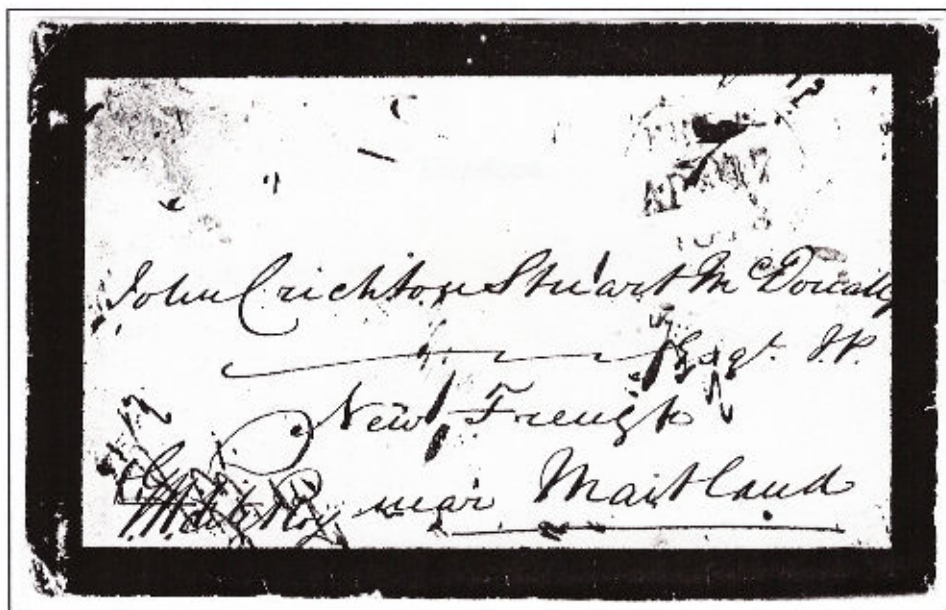 John Crichton Stuart McDouall
Esqr. J.P.
New Freugh
near Maitland